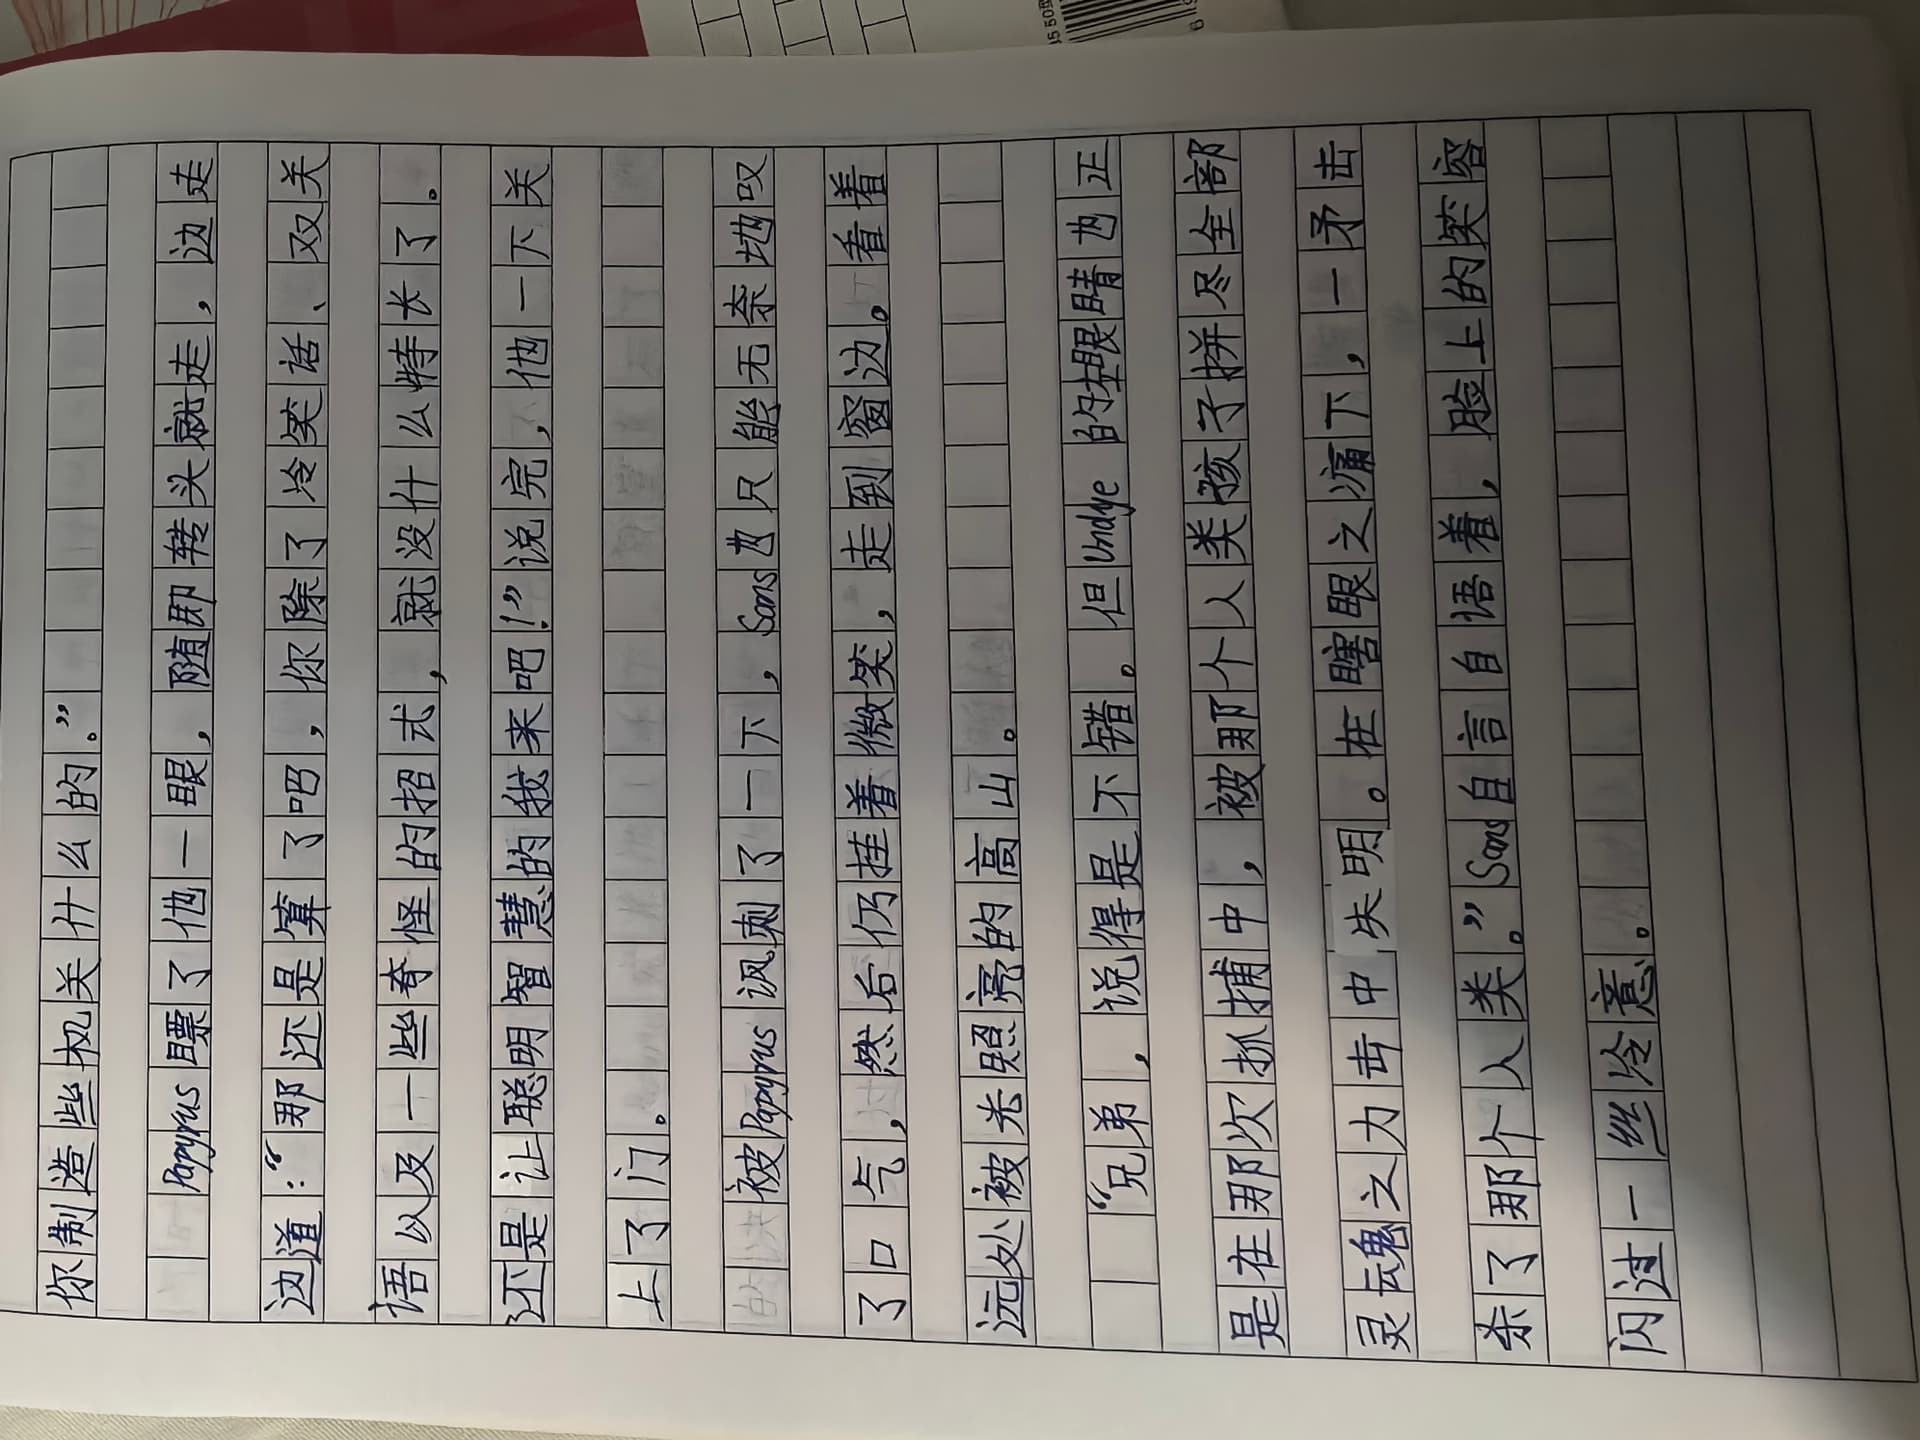 你制造些机关什么的。”
Papyrus瞟了他一眼，随即转头就走，边走
边道：“那还是算了吧，你除了冷笑话、双关
语以及一些夸怪的招式，就没什么特长了。
还是让聪明智慧的我来吧！”说完，他一下关
上了门。
被Papyrus讽刺了一下，Sans也只能无奈地叹
了口气，然后仍挂着微笑，走到窗边。看着
远处被光照亮的高山。
“兄弟，说得是不错。但Undye的左眼睛也正
是在那次抓捕中，被那个人类孩子拼尽全部
灵魂之力击中失明。在瞎眼之痛下，一矛击
杀了那个人类。”Sans自言自语着，脸上的笑容
闪过一丝冷意。
5505
6